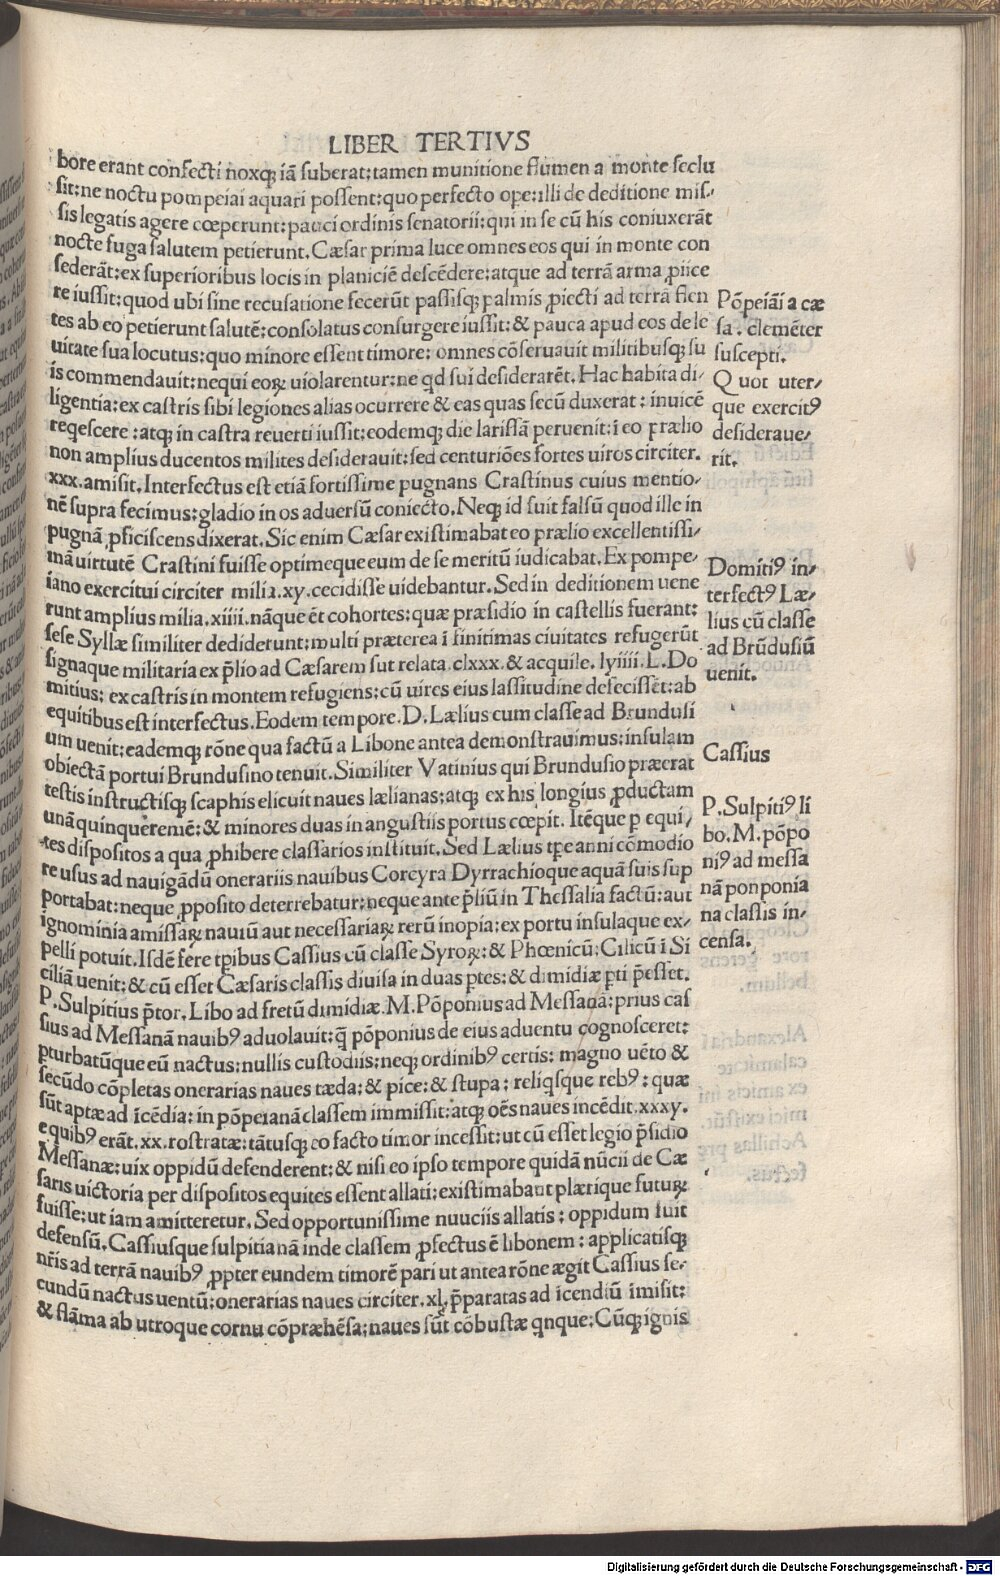 LIBER TERTIVS
bore erant confecti noxq; iā suberat: tamen munitione flumen a monte seclu
sit: ne noctu pompeiai aquari possent: quo perfecto ope: illi de deditione mis-
sis legatis agere cœperunt: pauci ordinis senatorii: qui in se cū his coniuxerāt
nocte fuga salutem petierunt. Cæsar prima luce omnes eos qui in monte con
sederāt: ex superioribus locis in planiciē descēdere: atque ad terrā arma ꝓiice
re iussit: quod ubi sine recusatione fecerūt passisq; palmis ꝓiecti ad terrā flen
tes ab eo petierunt salutē: consolatus consurgere iussit: & pauca apud eos de le
uitate sua locutus: quo minore essent timore: omnes cōseruauit militibusq; su
is commendauit: nequi eoꝝ uiolarentur: ne qd sui desiderarēt. Hac habita di-
ligentia: ex castris sibi legiones alias ocurrere & eas quas secū duxerat: inuicē
reqescere: atq; in castra reuerti iussit: eodemq; die larissā peruenit: ī eo prælio
non amplius ducentos milites desiderauit: sed centuriōes fortes uiros circiter.
xxx. amisit. Interfectus est etiā fortissime pugnans Crastinus cuius mentio-
nē supra fecimus: gladio in os aduersū coniecto. Neq; id fuit falsū quod ille in
pugnā ꝓficiscens dixerat. Sic enim Cæsar existimabat eo prælio excellentissi-
mā uirtutē Crastini fuisse optimeque eum de se meritū iudicabat. Ex pompe-
iano exercitui circiter milia. xy. cecidisse uidebantur. Sed in deditionem uene
runt amplius milia. xiiii. nāque ēt cohortes: quæ præsidio in castellis fuerant:
sese Syllæ similiter dediderunt: multi præterea ī finitimas ciuitates refugerūt
signaque militaria ex p̄lio ad Cæsarem sut relata. clxxx. & acquile. lyiiii. L. Do
mitius: ex castris in montem refugiens: cū uires eius lassitudine defecissēt: ab
equitibus est interfectus. Eodem tempore. D. Lælius cum classe ad Brundusi
um uenit: eademq; rōne qua factū a Libone antea demonstrauimus: insulam
obiectā portui Brundusino tenuit. Similiter Vatinius qui Brundusio præerat
testis instructisq; scaphis elicuit naues lælianas: atq; ex his longius ꝓductam
unā quinqueremē: & minores duas in angustiis portus cœpit. Itēque p equi-
tes dispositos a qua ꝓhibere classarios instituit. Sed Lælius tpe anni cōmodio
re usus ad nauigādū onerariis nauibus Corcyra Dyrrachioque aquā suis sup
portabat: neque ꝓposito deterrebatur: neque ante p̄liū in Thessalia factū: aut
ignominia amissaꝝ nauiū aut necessariaꝝ rerū inopia: ex portu insulaque ex-
pelli potuit. Isdē fere tpibus Cassius cū classe Syroꝝ: & Phœnicū: Cilicū ī Si
ciliā uenit: & cū esset Cæsaris classis diuisa in duas ptes: & dimidiæ pti p̄esset.
P. Sulpitius p̄tor. Libo ad fretū dimidiæ. M. Pōponius ad Messanā: prius caf
sius ad Messanā nauibꝰ aduolauit: q̄ pōponius de eius aduentu cognosceret:
pturbatūque eū nactus: nullis custodiis: neq; ordinibꝰ certis: magno uēto &
secūdo cōpletas onerarias naues tæda: & pice: & stupa: reliqsque rebꝰ: quæ
sūt aptæ ad īcēdia: in pōpeianā classem immissit: atq; oēs naues incēdit. xxxy.
e quibꝰ erāt. xx. rostratæ: tātusq; eo facto timor incessit: ut cū esset legio p̄sidio
Messanæ: uix oppidū defenderent: & nisi eo ipso tempore quidā nūcii de Cæ
saris uictoria per dispositos equites essent allati: existimabant plærique futuꝝ
fuisse: ut iam amitteretur. Sed opportunissime nuuciis allatis: oppidum fuit
defensū. Cassiusque sulpitianā inde classem ꝓfectus ē libonem: applicatisq;
nr̄is ad terrā nauibꝰ ꝓpter eundem timorē pari ut antea rōne ægit Cassius se-
cundū nactus uentū: onerarias naues circiter. xl. p̄paratas ad īcendiū īmisit:
& flāma ab utroque cornu cōpræhēsa: naues sūt cōbustæ qnque: Cūq; ignis
Pōpeiāi a cæ
sa. clemēter
suscepti.
Quot uter-
que exercitꝰ
desideraue-
rit.
Domitiꝰ in-
terfectꝰ Læ-
lius cū classe
ad Brūdusiū
uenit.
Cassius
P. Sulpitiꝰ li
bo. M. pōpo
niꝰ ad messa
nā ponponia
na classis in-
censa.
Digitalisierung gefördert durch die Deutsche Forschungsgemeinschaft - DFG